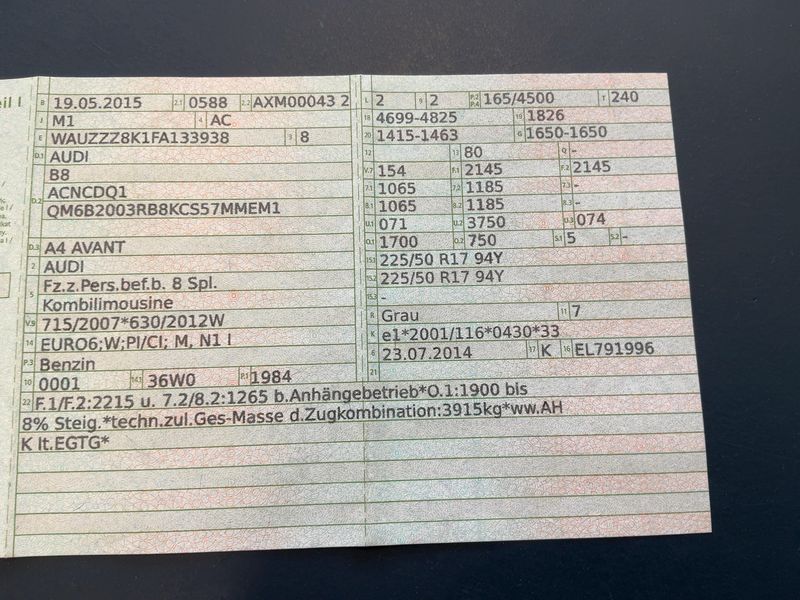 eil I
B 19.05.2015 2.1 0588 2.2 AXM00043 2
J M1 4 AC
E WAUZZZ8K1FA133938 3 8
D.1 AUDI
B8
D.2 ACNCDQ1
QM6B2003RB8KCS57MMEM1
D.3 A4 AVANT
2 AUDI
5 Fz.z.Pers.bef.b. 8 Spl.
Kombilimousine
V.9 715/2007*630/2012W
14 EURO6;W;PI/CI; M, N1 I
P.3 Benzin
10 0001 14.1 36W0 P.1 1984
L 2 9 2 P.2 P.4 165/4500 T 240
18 4699-4825 19 1826
20 1415-1463 G 1650-1650
12 13 80 Q -
V.7 154 F.1 2145 F.2 2145
7.1 1065 7.2 1185 7.3 -
8.1 1065 8.2 1185 8.3 -
U.1 071 U.2 3750 U.3 074
O.1 1700 O.2 750 S.1 5 S.2 -
15.1 225/50 R17 94Y
15.2 225/50 R17 94Y
15.3 -
R Grau 11 7
K e1*2001/116*0430*33
6 23.07.2014 17 K 16 EL791996
21
22 F.1/F.2:2215 u. 7.2/8.2:1265 b.Anhängebetrieb*O.1:1900 bis
8% Steig.*techn.zul.Ges-Masse d.Zugkombination:3915kg*ww.AH
K lt.EGTG*